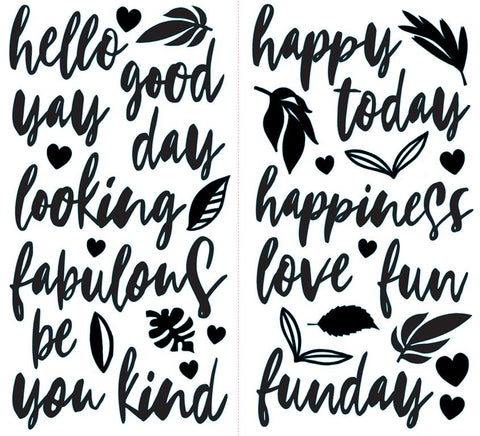 hello
good
yay
day
looking
fabulous
be
you kind
happy
today
happiness
love fun
funday